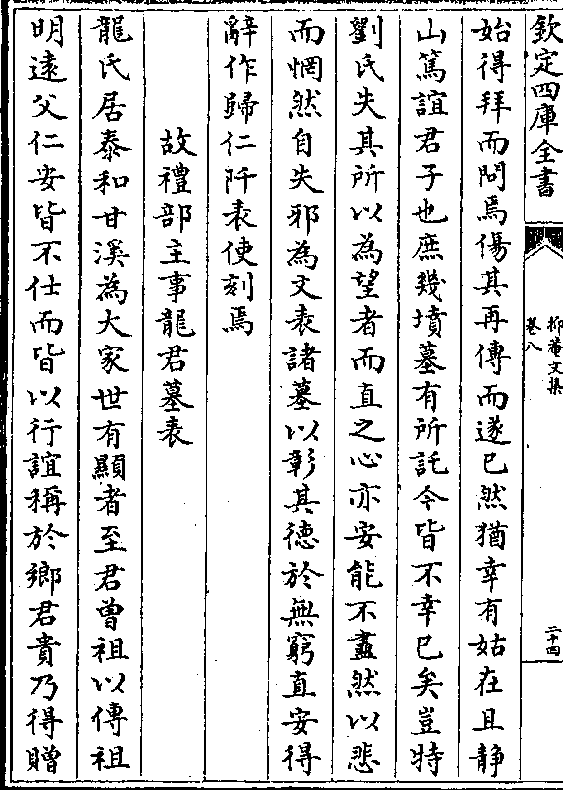 欽定四庫全書
抑菴文集
卷八
二十四
始得拜而問焉傷其再傳而遂已然猶幸有姑在且靜
山篤誼君子也庶幾墳墓有所託今皆不幸已矣豈特
劉氏失其所以為望者而直之心亦安能不盡然以悲
而惘然自失邪為文表諸墓以彰其德於無窮直安得
辭作歸仁阡表使刻焉
故禮部主事龍君墓表
龍氏居泰和甘溪為大家世有顯者至君曾祖以傳祖
明遠父仁安皆不仕而皆以行誼稱於鄉君貴乃得贈